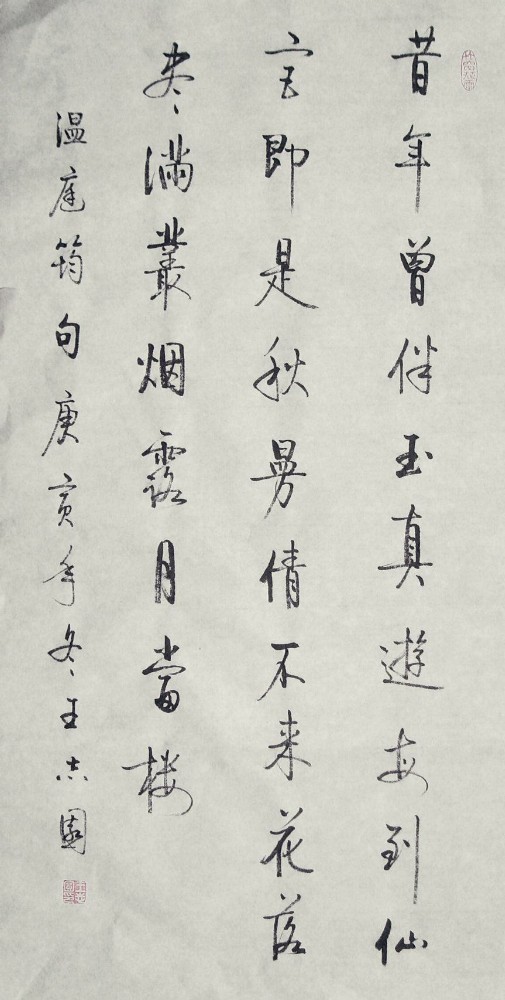 昔年曾伴玉真遊每到仙
宫即是秋曼倩不来花落
尽滿叢烟露月當楼
温庭筠句庚寅年冬王志園